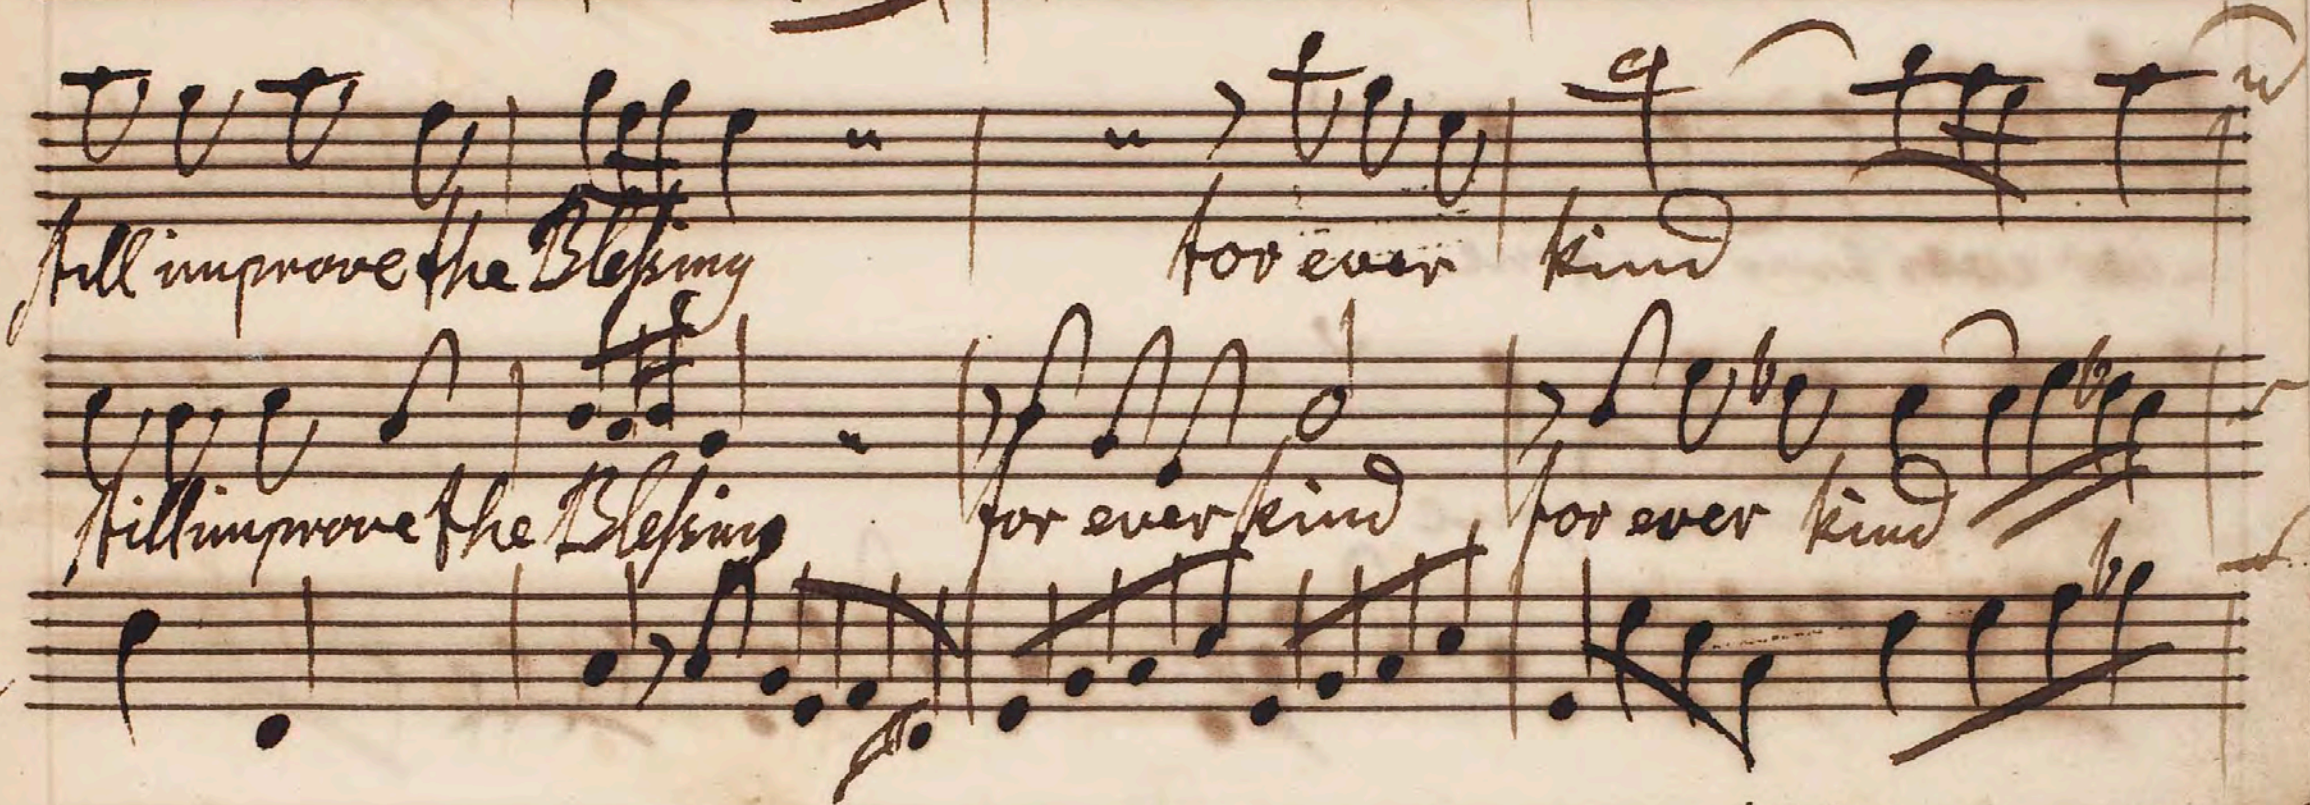 still improve the Blessing for ever kind
still improve the Blessing for ever kind for ever kind